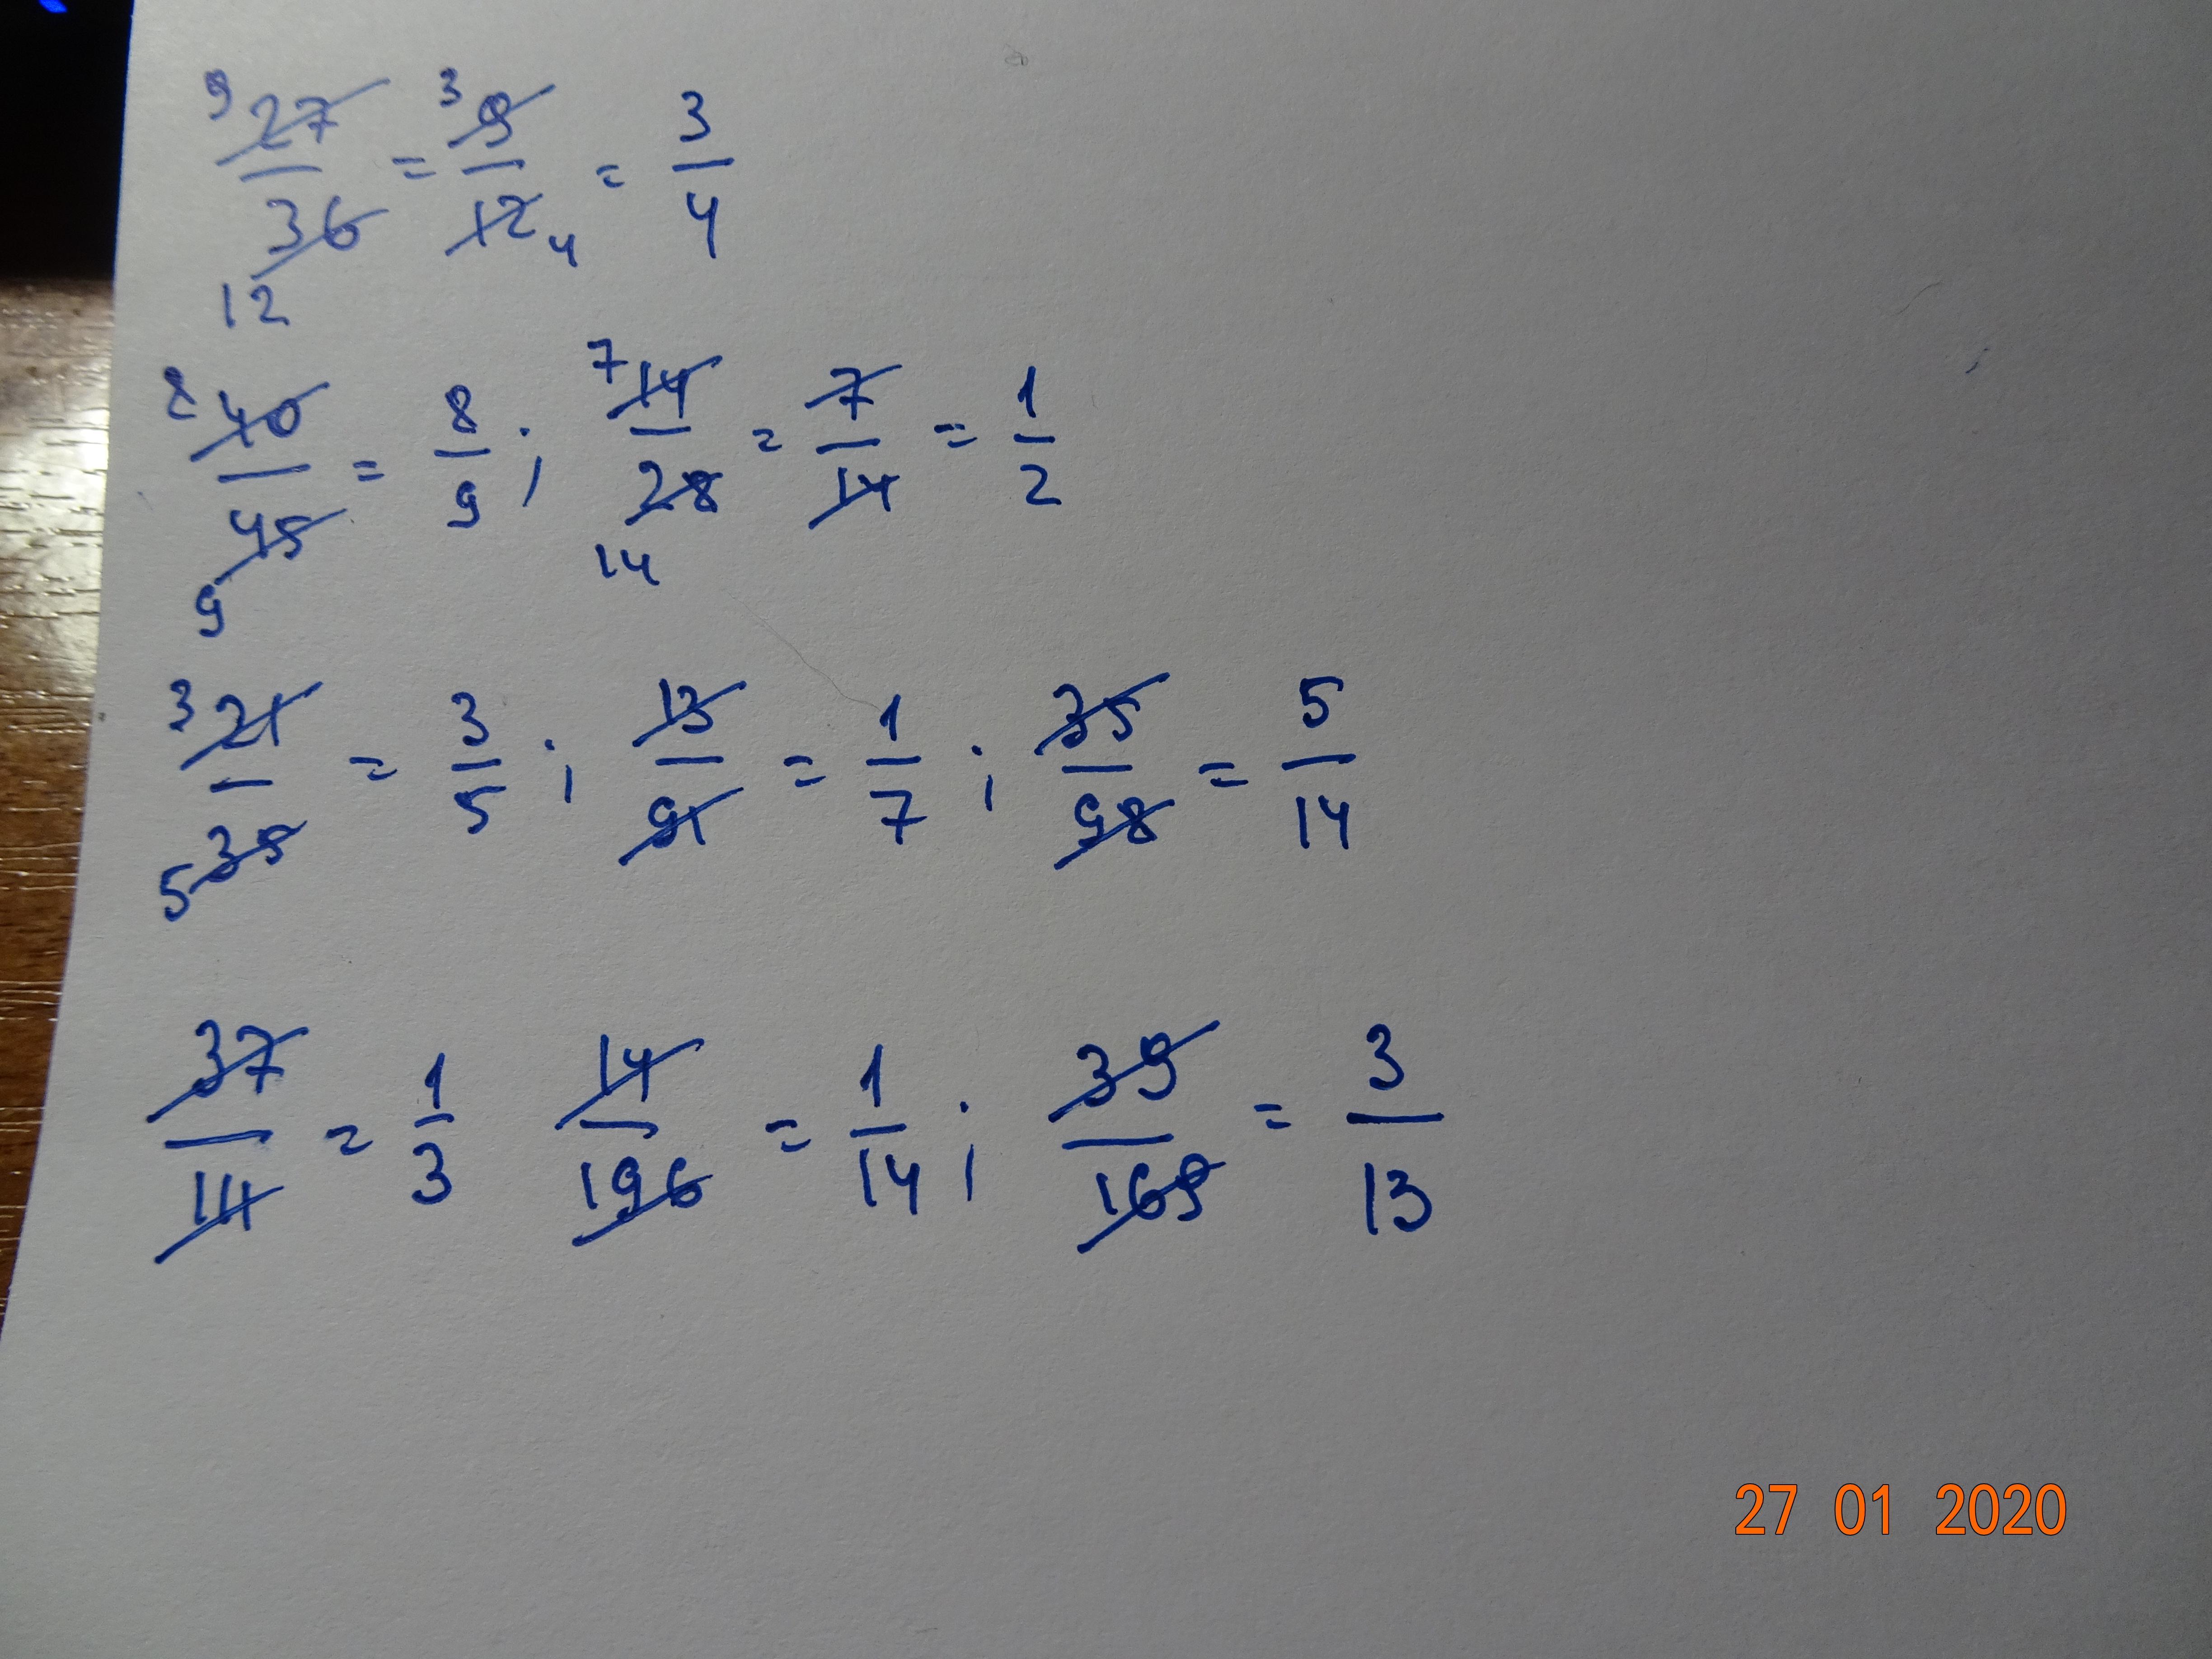 9 27/36 12 = 3 9/12 4 = 3/4
8 40/45 9 = 8/9 ; 7 14/28 14 = 7/14 = 1/2
3 21/35 5 = 3/5 ; 13/91 = 1/7 ; 35/98 = 5/14
37/111 = 1/3 14/196 = 1/14 ; 39/169 = 3/13
27 01 2020